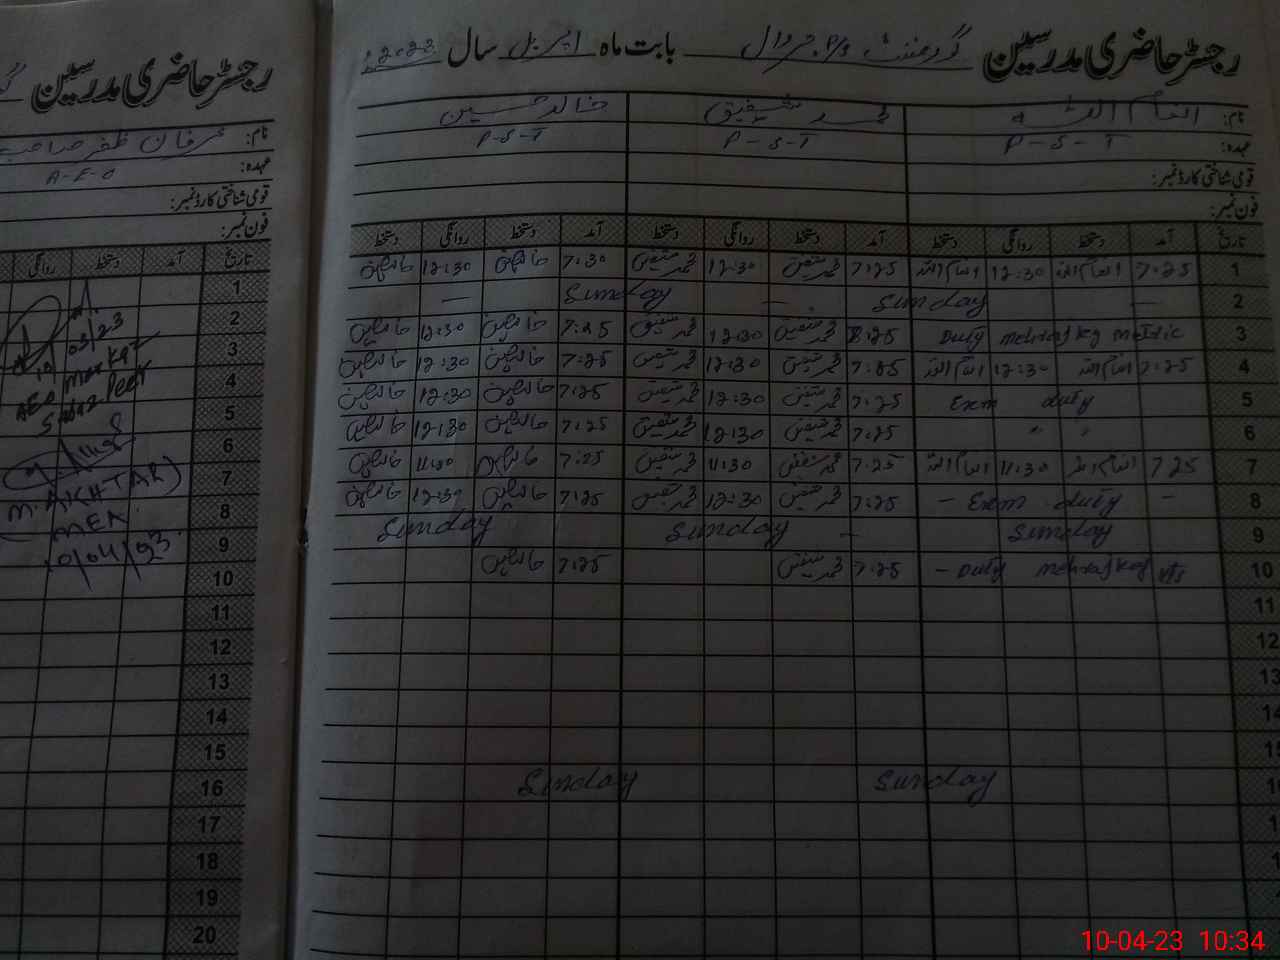 رجسٹر حاضری مدرسین گورنمنٹ P/S بابت ماہ اپریل سال 2023
نام: انعام اللہ محمد شفیق خالد حسین
عہدہ: P-S-T P-S-T P-S-T
قومی شناختی کارڈ نمبر:
فون نمبر:
تاریخ آمد دستخط روانگی دستخط آمد دستخط روانگی دستخط آمد دستخط روانگی دستخط
1 7:25 انعام اللہ 12:30 انعام اللہ 7:25 محمد شفیق 12:30 محمد شفیق 7:30 12:30
2 — Sunday — Sunday —
3 Duty mehrajkg metric 8:25 محمد شفیق 12:30 محمد شفیق 7:25 12:30
4 7:25 انعام اللہ 12:30 انعام اللہ 7:25 محمد شفیق 12:30 محمد شفیق 7:25 12:30
5 Exm duty 7:25 محمد شفیق 12:30 محمد شفیق 7:25 12:30
6 " " 7:25 محمد شفیق 12:30 محمد شفیق 7:25 12:30
7 7:25 انعام اللہ 11:30 انعام اللہ 7:25 محمد شفیق 11:30 محمد شفیق 7:25 11:30
8 – Exm duty – 7:25 محمد شفیق 12:30 محمد شفیق 7:25 12:30
9 Sunday – Sunday Sunday
10 – Duty mehrajkg 7:25 محمد شفیق 7:25
11
12
13
14
15
16 Sunday Sunday
رجسٹر حاضری مدرسین
نام: عرفان ظفر صاحب
عہدہ: A-E-O
قومی شناختی کارڈ نمبر:
فون نمبر:
تاریخ آمد دستخط روانگی
1
2
3
4
5
6
7
8
9
10
11
12
13
14
15
16
17
18
19
20
03/23
AEO Markaz
(M. AKHTAR)
MEA
10/04/23
10-04-23 10:34